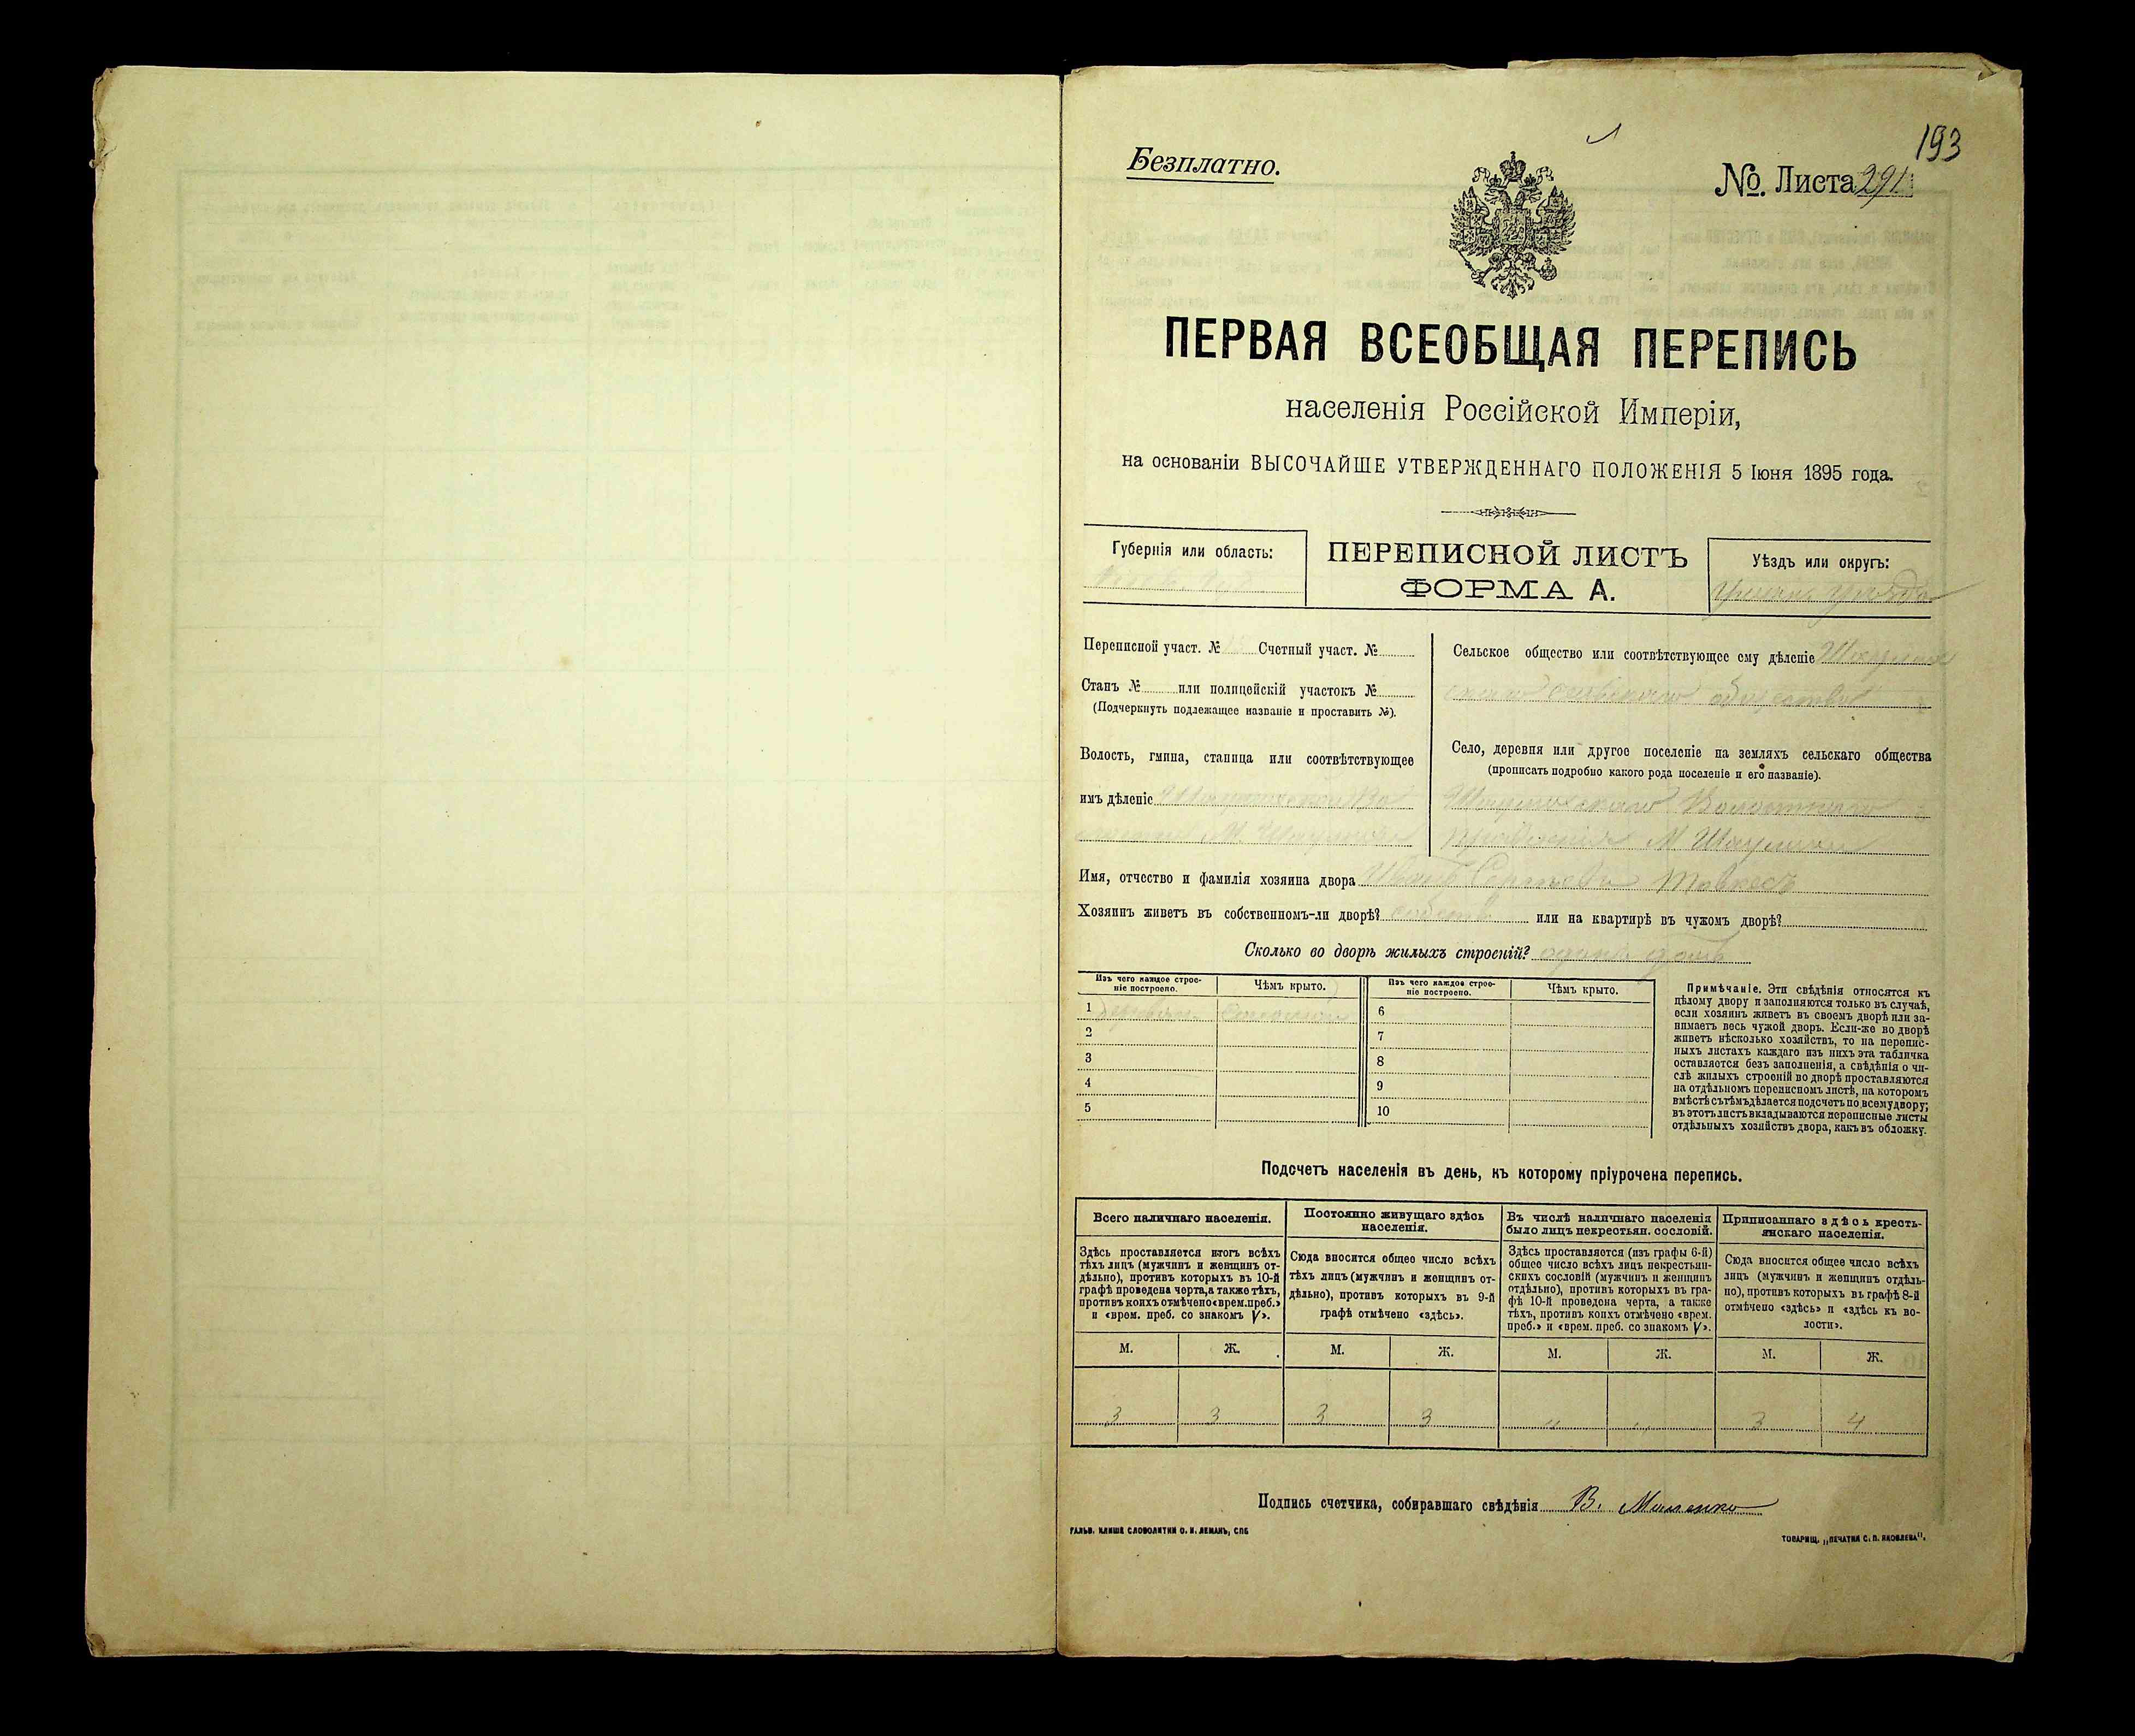 193
Безплатно.
№. Листа 291
ПЕРВАЯ ВСЕОБЩАЯ ПЕРЕПИСЬ
населенія Россійской Имперіи,
на основаніи ВЫСОЧАЙШЕ УТВЕРЖДЕННАГО ПОЛОЖЕНІЯ 5 Іюня 1895 года.
Губернія или область:
ПЕРЕПИСНОЙ ЛИСТЪ
ФОРМА А.
Уѣздъ или округъ:
Переписной участ. № Счетный участ. №
Станъ № или полицейскій участокъ №
(Подчеркнуть подлежащее названіе и проставить №).
Волость, гмина, станица или соотвѣтствующее
имъ дѣленіе
Сельское общество или соотвѣтствующее ему дѣленіе
общества
Село, деревня или другое поселеніе на земляхъ сельскаго общества
(прописать подробно какого рода поселеніе и его названіе).
Имя, отчество и фамилія хозяина двора Иванъ
Хозяинъ живетъ въ собственномъ-ли дворѣ? или на квартирѣ въ чужомъ дворѣ?
Сколько во дворѣ жилыхъ строеній? одинъ домъ
Изъ чего каждое строе-
ніе построено.
Чѣмъ крыто.
Изъ чего каждое строе-
ніе построено.
Чѣмъ крыто.
1
2
3
4
5
6
7
8
9
10
Примѣчаніе. Эти свѣдѣнія относятся къ
цѣлому двору и заполняются только въ случаѣ,
если хозяинъ живетъ въ своемъ дворѣ или за-
нимаетъ весь чужой дворъ. Если-же во дворѣ
живетъ нѣсколько хозяйствъ, то на перепис-
ныхъ листахъ каждаго изъ нихъ эта табличка
оставляется безъ заполненія, а свѣдѣнія о чи-
слѣ жилыхъ строеній во дворѣ проставляются
на отдѣльномъ переписномъ листѣ, на которомъ
вмѣстѣ съ тѣмъ дѣлается подсчетъ по всему двору;
въ этотъ листъ вкладываются переписные листы
отдѣльныхъ хозяйствъ двора, какъ въ обложку.
Подсчетъ населенія въ день, къ которому пріурочена перепись.
Всего наличнаго населенія.
Здѣсь проставляется итогъ всѣхъ
тѣхъ лицъ (мужчинъ и женщинъ от-
дѣльно), противъ которыхъ въ 10-й
графѣ проведена черта, а также тѣхъ,
противъ коихъ отмѣчено «врем. преб.»
и «врем. преб. со знакомъ V».
Постоянно живущаго здѣсь
населенія.
Сюда вносится общее число всѣхъ
тѣхъ лицъ (мужчинъ и женщинъ от-
дѣльно), противъ которыхъ въ 9-й
графѣ отмѣчено «здѣсь».
Въ числѣ наличнаго населенія
было лицъ некрестьян. сословій.
Здѣсь проставляется (изъ графы 6-й)
общее число всѣхъ лицъ некрестьян-
скихъ сословій (мужчинъ и женщинъ
отдѣльно), противъ которыхъ въ гра-
фѣ 10-й проведена черта, а также
тѣхъ, противъ коихъ отмѣчено «врем.
преб.» и «врем. преб. со знакомъ V».
Приписаннаго здѣсь кресть-
янскаго населенія.
Сюда вносится общее число всѣхъ
лицъ (мужчинъ и женщинъ отдѣль-
но), противъ которыхъ въ графѣ 8-й
отмѣчено «здѣсь» и «здѣсь къ во-
лости».
М. Ж. М. Ж. М. Ж. М. Ж.
3 3 3 3 „ „ 3 4
Подпись счетчика, собиравшаго свѣдѣнія В.
ГАЛЬВ. КЛИШЕ СЛОВОЛИТНИ О. И. ЛЕМАНЪ, СПБ
ТОВАРИЩ. „ПЕЧАТНЯ С. П. ЯКОВЛЕВА".